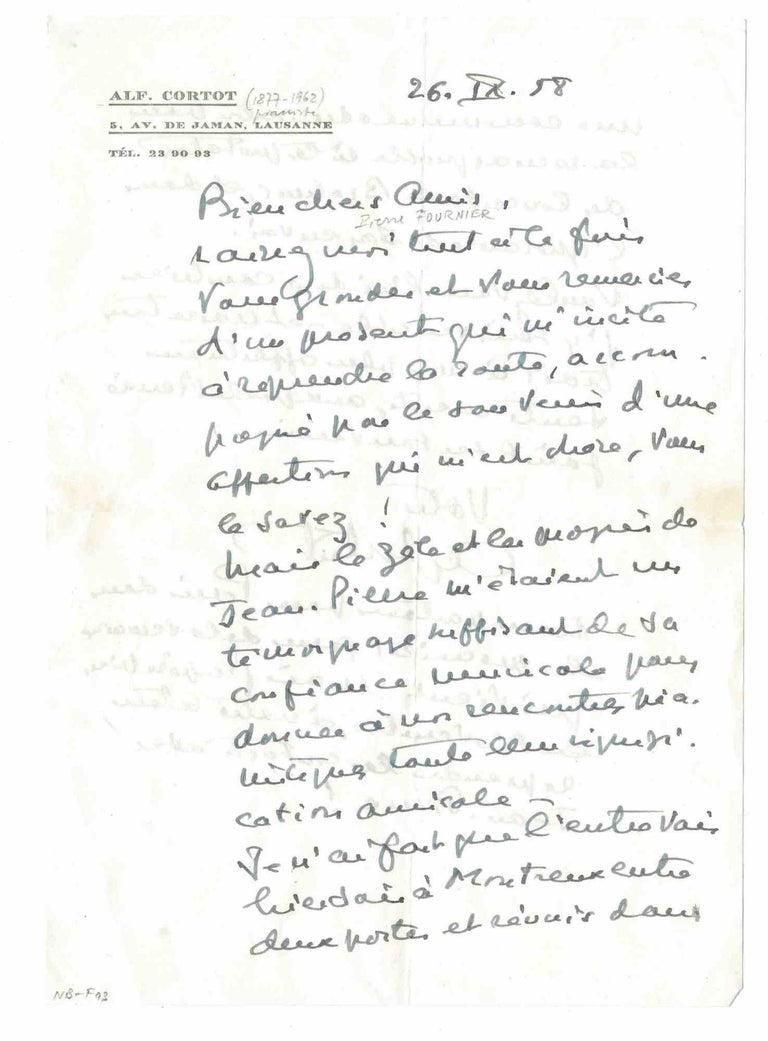 ALF. CORTOT (1877-1962)
pianiste
5, AV. DE JAMAN, LAUSANNE
TÉL. 23 90 93
26. IX. 58
Bien chers Amis,
Pierre FOURNIER
laissez moi tout à la fois
vous gronder et vous remercier
d'un présent qui m'incite
à reprendre la route, accom-
pagné par le souvenir d'une
affection qui m'est chère, vous
le savez !
Mais le zèle et les progrès de
Jean-Pierre m'étaient un
témoignage suffisant de sa
confiance musicale pour
donner à nos rencontres pia-
nistiques toute leur signifi-
cation amicale -
Je n'ai fait que l'entrevoir
hier soir à Montreux entre
deux portes et réunis dans
NB-F93